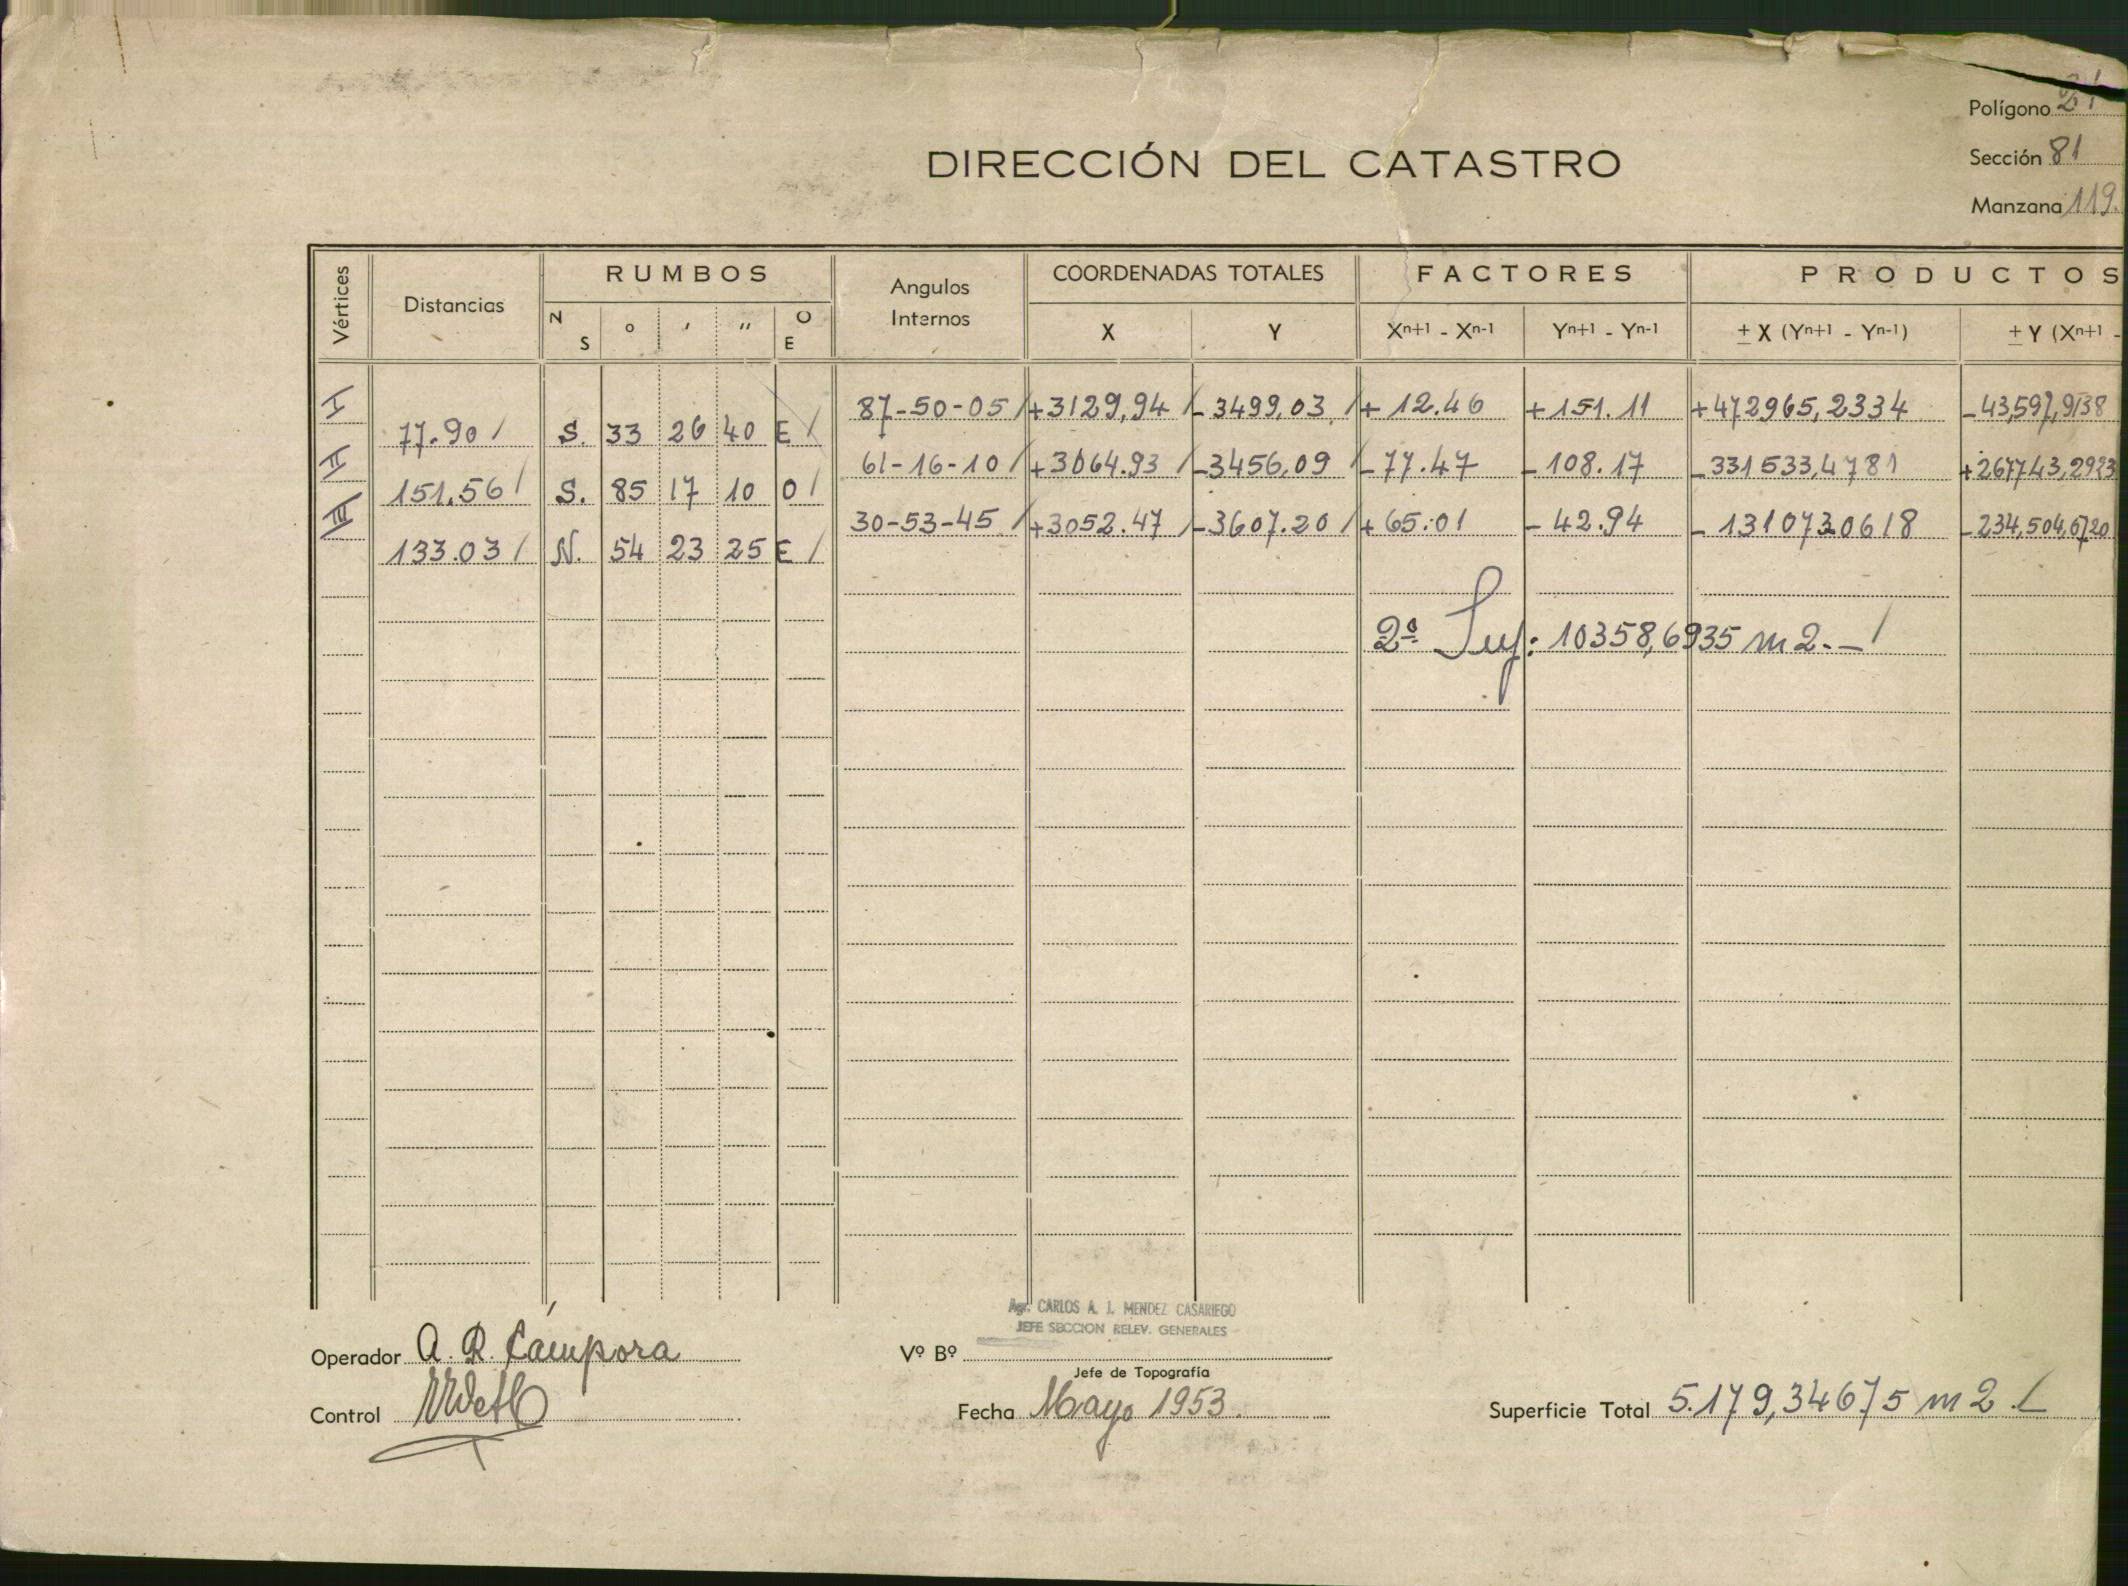 Polígono 21
DIRECCIÓN DEL CATASTRO
Sección 81
Manzana 119.
Vértices
Distancias
RUMBOS
N S
o
′
″
O E
Angulos Internos
COORDENADAS TOTALES
X
Y
FACTORES
Xn+1 - Xn-1
Yn+1 - Yn-1
PRODUCTOS
± X (Yn+1 - Yn-1)
± Y (Xn+1 -
I 87-50-05 / +3129,94 / -3499,03 / +12.46 +151.11 +472965,2334 -43,597,9138
77.90 / S. 33 26 40 E /
II 61-16-10 / +3064.93 / -3456,09 / -77.47 -108.17 -331533,4781 +267743,2923
151.56 / S. 85 17 10 O /
III 30-53-45 / +3052.47 / -3607.20 / +65.01 -42.94 -131073.0618 -234,504,0720
133.03 / N. 54 23 25 E /
2ª Sup: 10358,6935 m2.- /
Agr. CARLOS A. J. MENDEZ CASARIEGO
JEFE SECCION RELEV. GENERALES
Operador A. R. Cámpora
Vº Bº
Jefe de Topografía
Control
Fecha Mayo 1953.
Superficie Total 5.179,34675 m2.